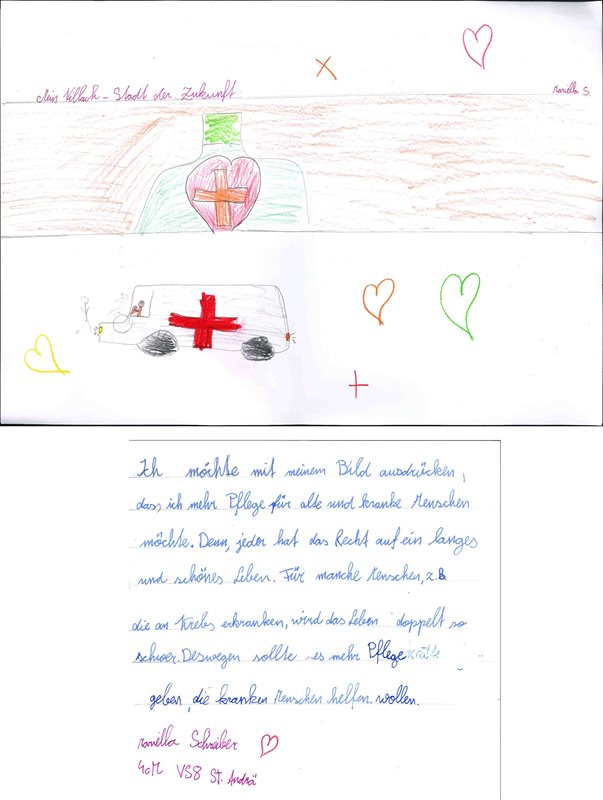 Mein Villach - Stadt der Zukunft
Mariella S.
Ich möchte mit meinem Bild ausdrücken,
das, ich mehr Pflege für alte und kranke Menschen
möchte. Denn, jeder hat das Recht auf ein langes
und schönes Leben. Für manche Menschen, z.B.
die an Krebs erkranken, wird das Leben doppelt so
schwer. Deswegen sollte es mehr Pflegekräfte
geben, die kranken Menschen helfen wollen.
Mariella Schreiber
4aM VS8 St. Andrä